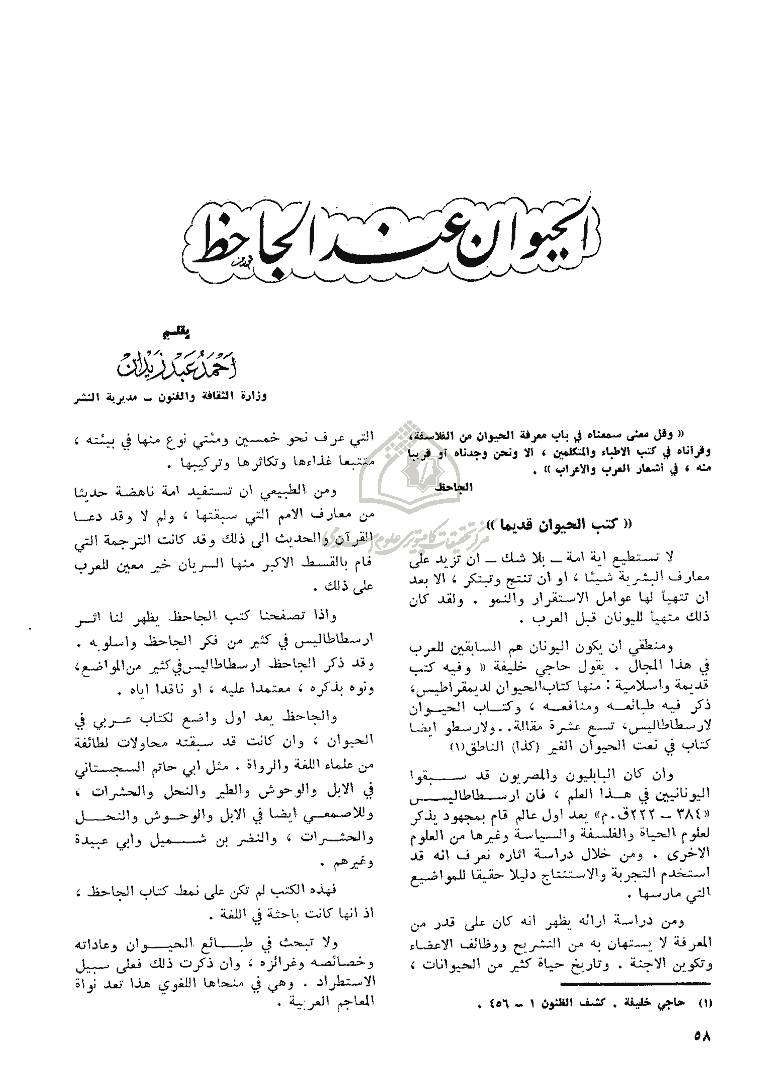 الحيوان عند الجاحظ
بقلم
احمد عبد زيدان
وزارة الثقافة والفنون ــ مديرية النشر
« وقل معنى سمعناه في باب معرفة الحيوان من الفلاسفة،
وقرأناه في كتب الاطباء والمتكلمين ، الا ونحن وجدناه او قريبا
منه ، في أشعار العرب والأعراب » .
الجاحظ
« كتب الحيوان قديما »
لا تستطيع اية امة ــ بلا شك ــ ان تزيد على
معارف البشرية شيئا ، او أن تنتج وتبتكر ، الا بعد
ان تتهيأ لها عوامل الاستقرار والنمو . ولقد كان
ذلك متهيأ لليونان قبل العرب .
ومنطقي ان يكون اليونان هم السابقين للعرب
في هذا المجال . يقول حاجي خليفة « وفيه كتب
قديمة واسلامية : منها كتاب الحيوان لديمقراطيس،
ذكر فيه طبائعه ومنافعه ، وكتاب الحيوان
لارسطاطاليس، تسع عشرة مقالة..ولارسطو ايضا
كتاب في نعت الحيوان الغير (كذا) الناطق(١)
وان كان البابليون والمصريون قد سبقوا
اليونانيين في هذا العلم ، فان ارسطاطاليس
«٣٨٤ ــ ٢٢٢ق.م» يعد اول عالم قام بمجهود يذكر
لعلوم الحياة والفلسفة والسياسة وغيرها من العلوم
الاخرى . ومن خلال دراسة اثاره نعرف انه قد
استخدم التجربة والاستنتاج دليلا حقيقا للمواضيع
التي مارسها .
ومن دراسة ارائه يظهر انه كان على قدر من
المعرفة لا يستهان به من التشريح ووظائف الاعضاء
وتكوين الاجنة . وتاريخ حياة كثير من الحيوانات ،
(١) حاجي خليفة . كشف الظنون ١ ــ ٤٥٦ .
التي عرف نحو خمسين ومئتي نوع منها في بيئته ،
متتبعا غذاءها وتكاثرها وتركيبها .
ومن الطبيعي ان تستفيد امة ناهضة حديثا
من معارف الامم التي سبقتها ، ولم لا وقد دعا
القرآن والحديث الى ذلك وقد كانت الترجمة التي
قام بالقسط الاكبر منها السريان خير معين للعرب
على ذلك .
واذا تصفحنا كتب الجاحظ يظهر لنا اثر
ارسطاطاليس في كثير من فكر الجاحظ واسلوبه .
وقد ذكر الجاحظ ارسطاطاليس في كثير من المواضع،
ونوه بذكره ، معتمدا عليه ، او ناقدا اياه .
والجاحظ يعد اول واضع لكتاب عربي في
الحيوان ، وان كانت قد سبقته محاولات لطائفة
من علماء اللغة والرواة . مثل ابي حاتم السجستاني
في الابل والوحوش والطير والنحل والحشرات ،
وللاصمعي ايضا في الابل والوحوش والنحل
والحشرات ، والنضر بن شميل وابي عبيدة
وغيرهم .
فهذه الكتب لم تكن على نمط كتاب الجاحظ ،
اذ انها كانت باحثة في اللغة .
ولا تبحث في طبائع الحيوان وعاداته
وخصائصه وغرائزه ، وان ذكرت ذلك فعلى سبيل
الاستطراد . وهي في منحاها اللغوي هذا تعد نواة
المعاجم العربية .
٥٨